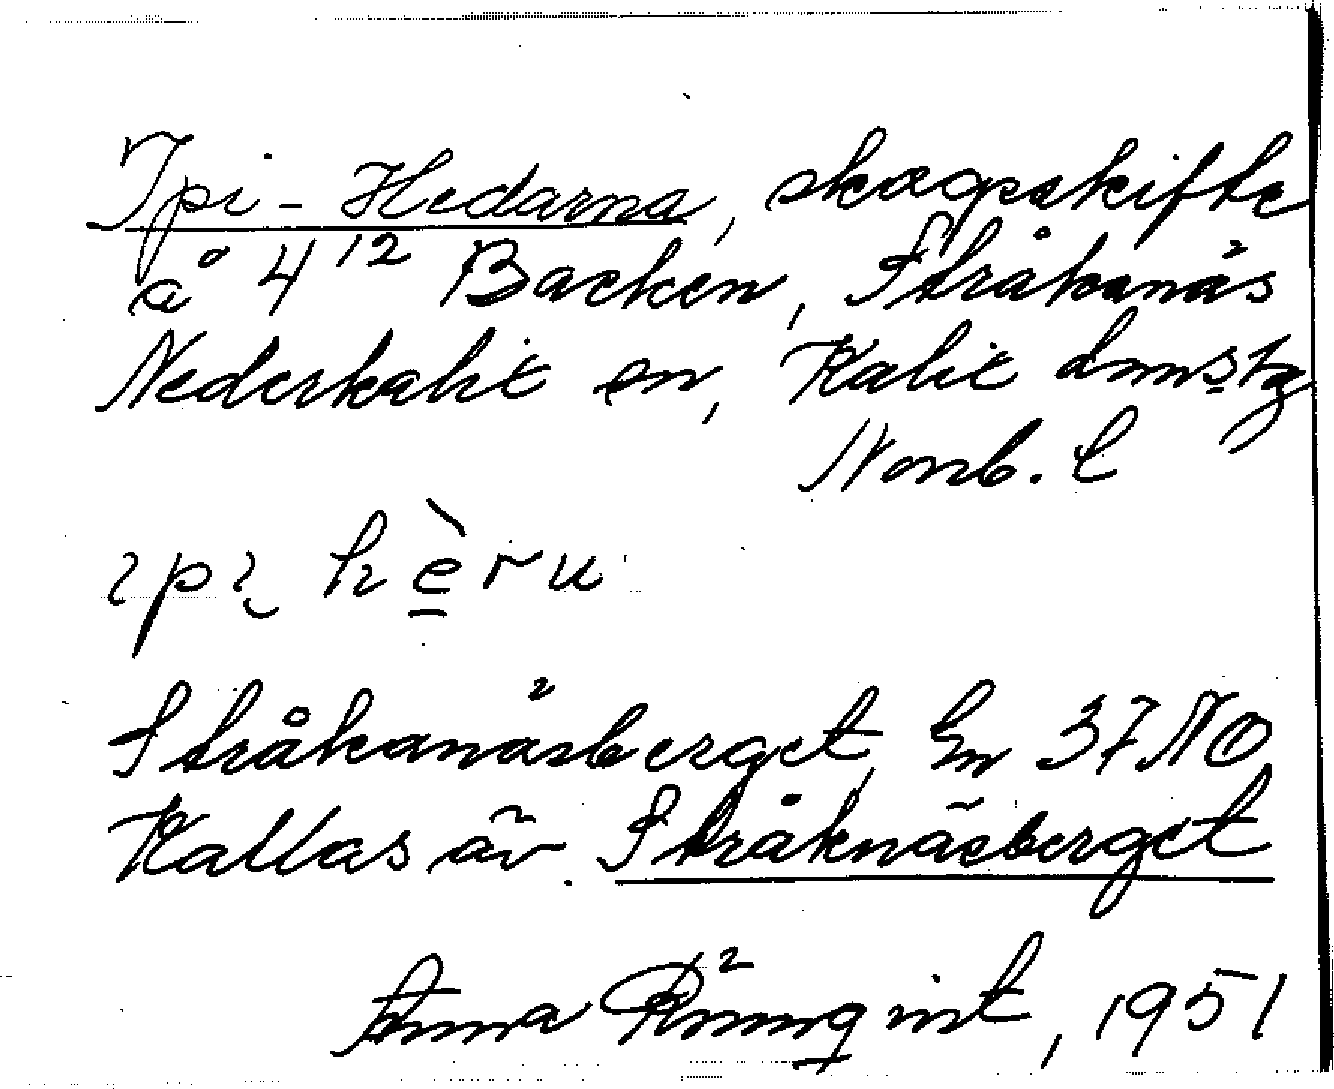 Ipi-Hedarna, skogsskifte
å 4¹² Backen, Stråkanäs
Nederkalix sn, Kalix
Norrb. l
ipi hèru
Stråkanäsberget, En 37 NO
Kallas äv. Stråknäsberget
Anna Rönnqvist, 1951